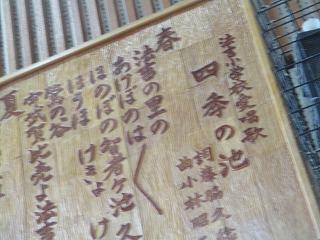 法吉小学校愛唱歌
四季の池
曲 小林昭
春
法吉の里の
あけぼのは
ほのぼの智者ケ池
ほうほけきょ
鶯の谷
宇武賀比売よ法吉
夏